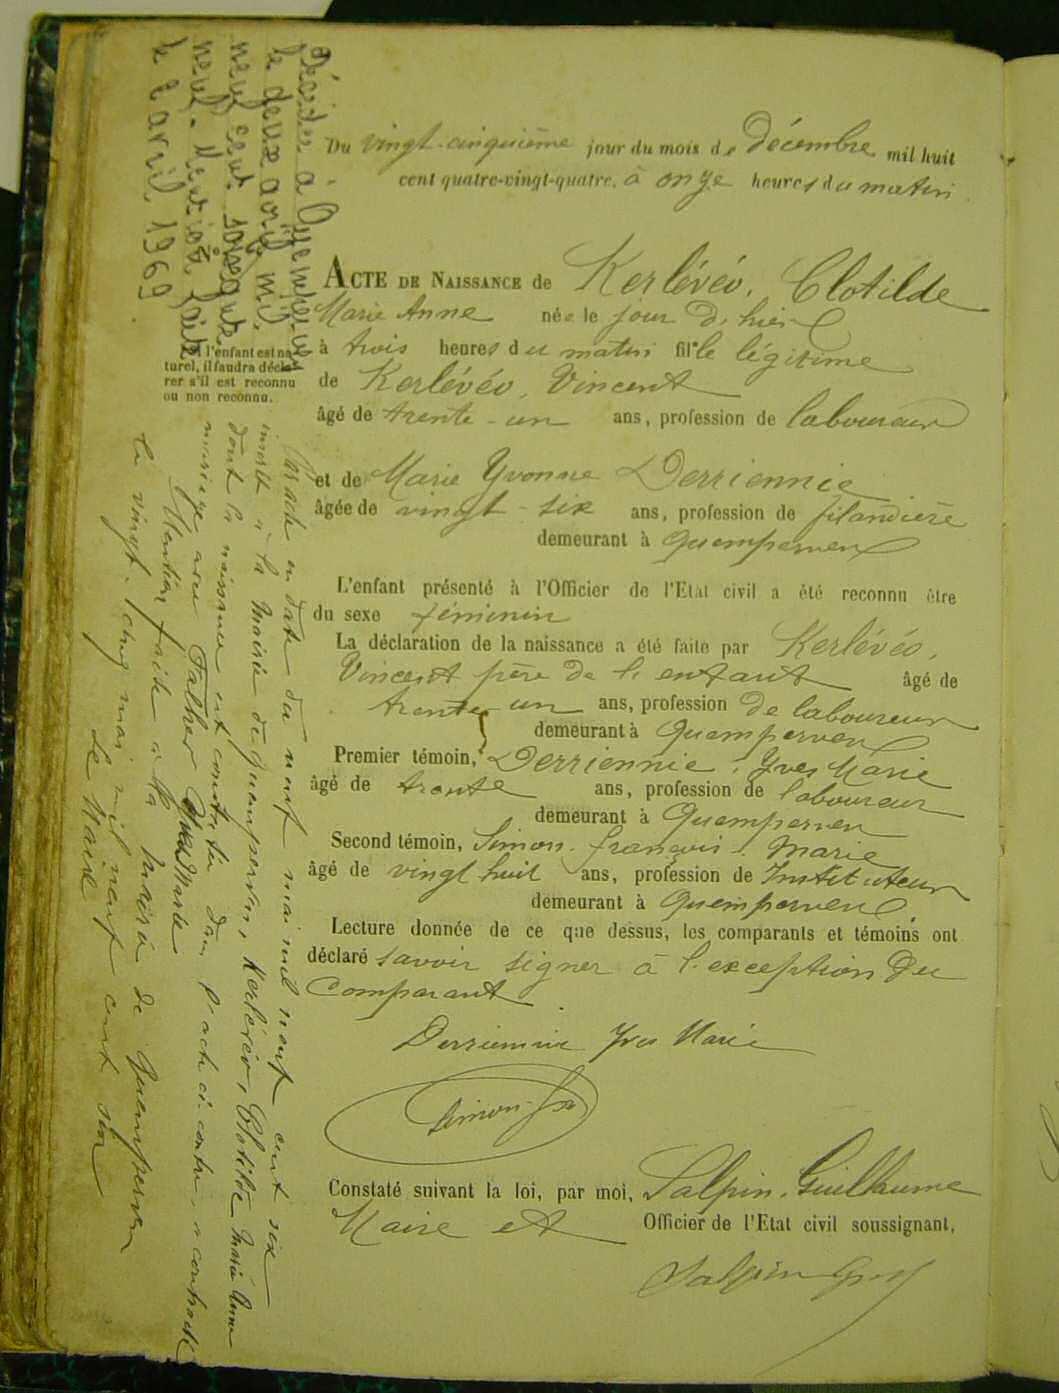 Du vingt-cinquième jour du mois de décembre mil huit
cent quatre-vingt-quatre, à onze heures du matin
ACTE DE NAISSANCE de Kerlévéo, Clotilde
Marie Anne née le jour d'hier
à trois heures du matin fille légitime
de Kerlévéo, Vincent
âgé de trente-un ans, profession de laboureur
et de Marie Yvonne Derriennic
âgée de vingt-six ans, profession de filandière
demeurant à Quemperven
L'enfant présenté à l'Officier de l'Etat civil a été reconnu être
du sexe féminin
La déclaration de la naissance a été faite par Kerlévéo,
Vincent père de l'enfant âgé de
trente un ans, profession de laboureur
demeurant à Quemperven
Premier témoin, Derriennic, Yves Marie
âgé de trente ans, profession de laboureur
demeurant à Quemperven
Second témoin, Simon, françois, Marie
âgé de vingt huit ans, profession de Instituteur
demeurant à Quemperven
Lecture donnée de ce que dessus, les comparants et témoins ont
déclaré savoir signer à l'exception du
Comparant
Derriennic Yves Marie
Simon fx
Constaté suivant la loi, par moi, Salpin, Guillaume
Maire et Officier de l'Etat civil soussignant,
Salpin
Décédée à Quemperven
le deux avril mil
neuf cent soixante
neuf. Mention faite
le 2 avril 1969
Si l'enfant est na-
turel, il faudra décla-
rer s'il est reconnu
ou non reconnu.
Par acte en date du neuf mai mil neuf cent six
inscrit à la Mairie de Quemperven, Kerlévéo, Clotilde Marie Anne
dont la naissance est constatée dans l'acte ci-contre, a contracté
mariage avec Yves Marie
Mention faite à la Mairie de Quemperven
le vingt-cinq mai mil neuf cent six
Le Maire